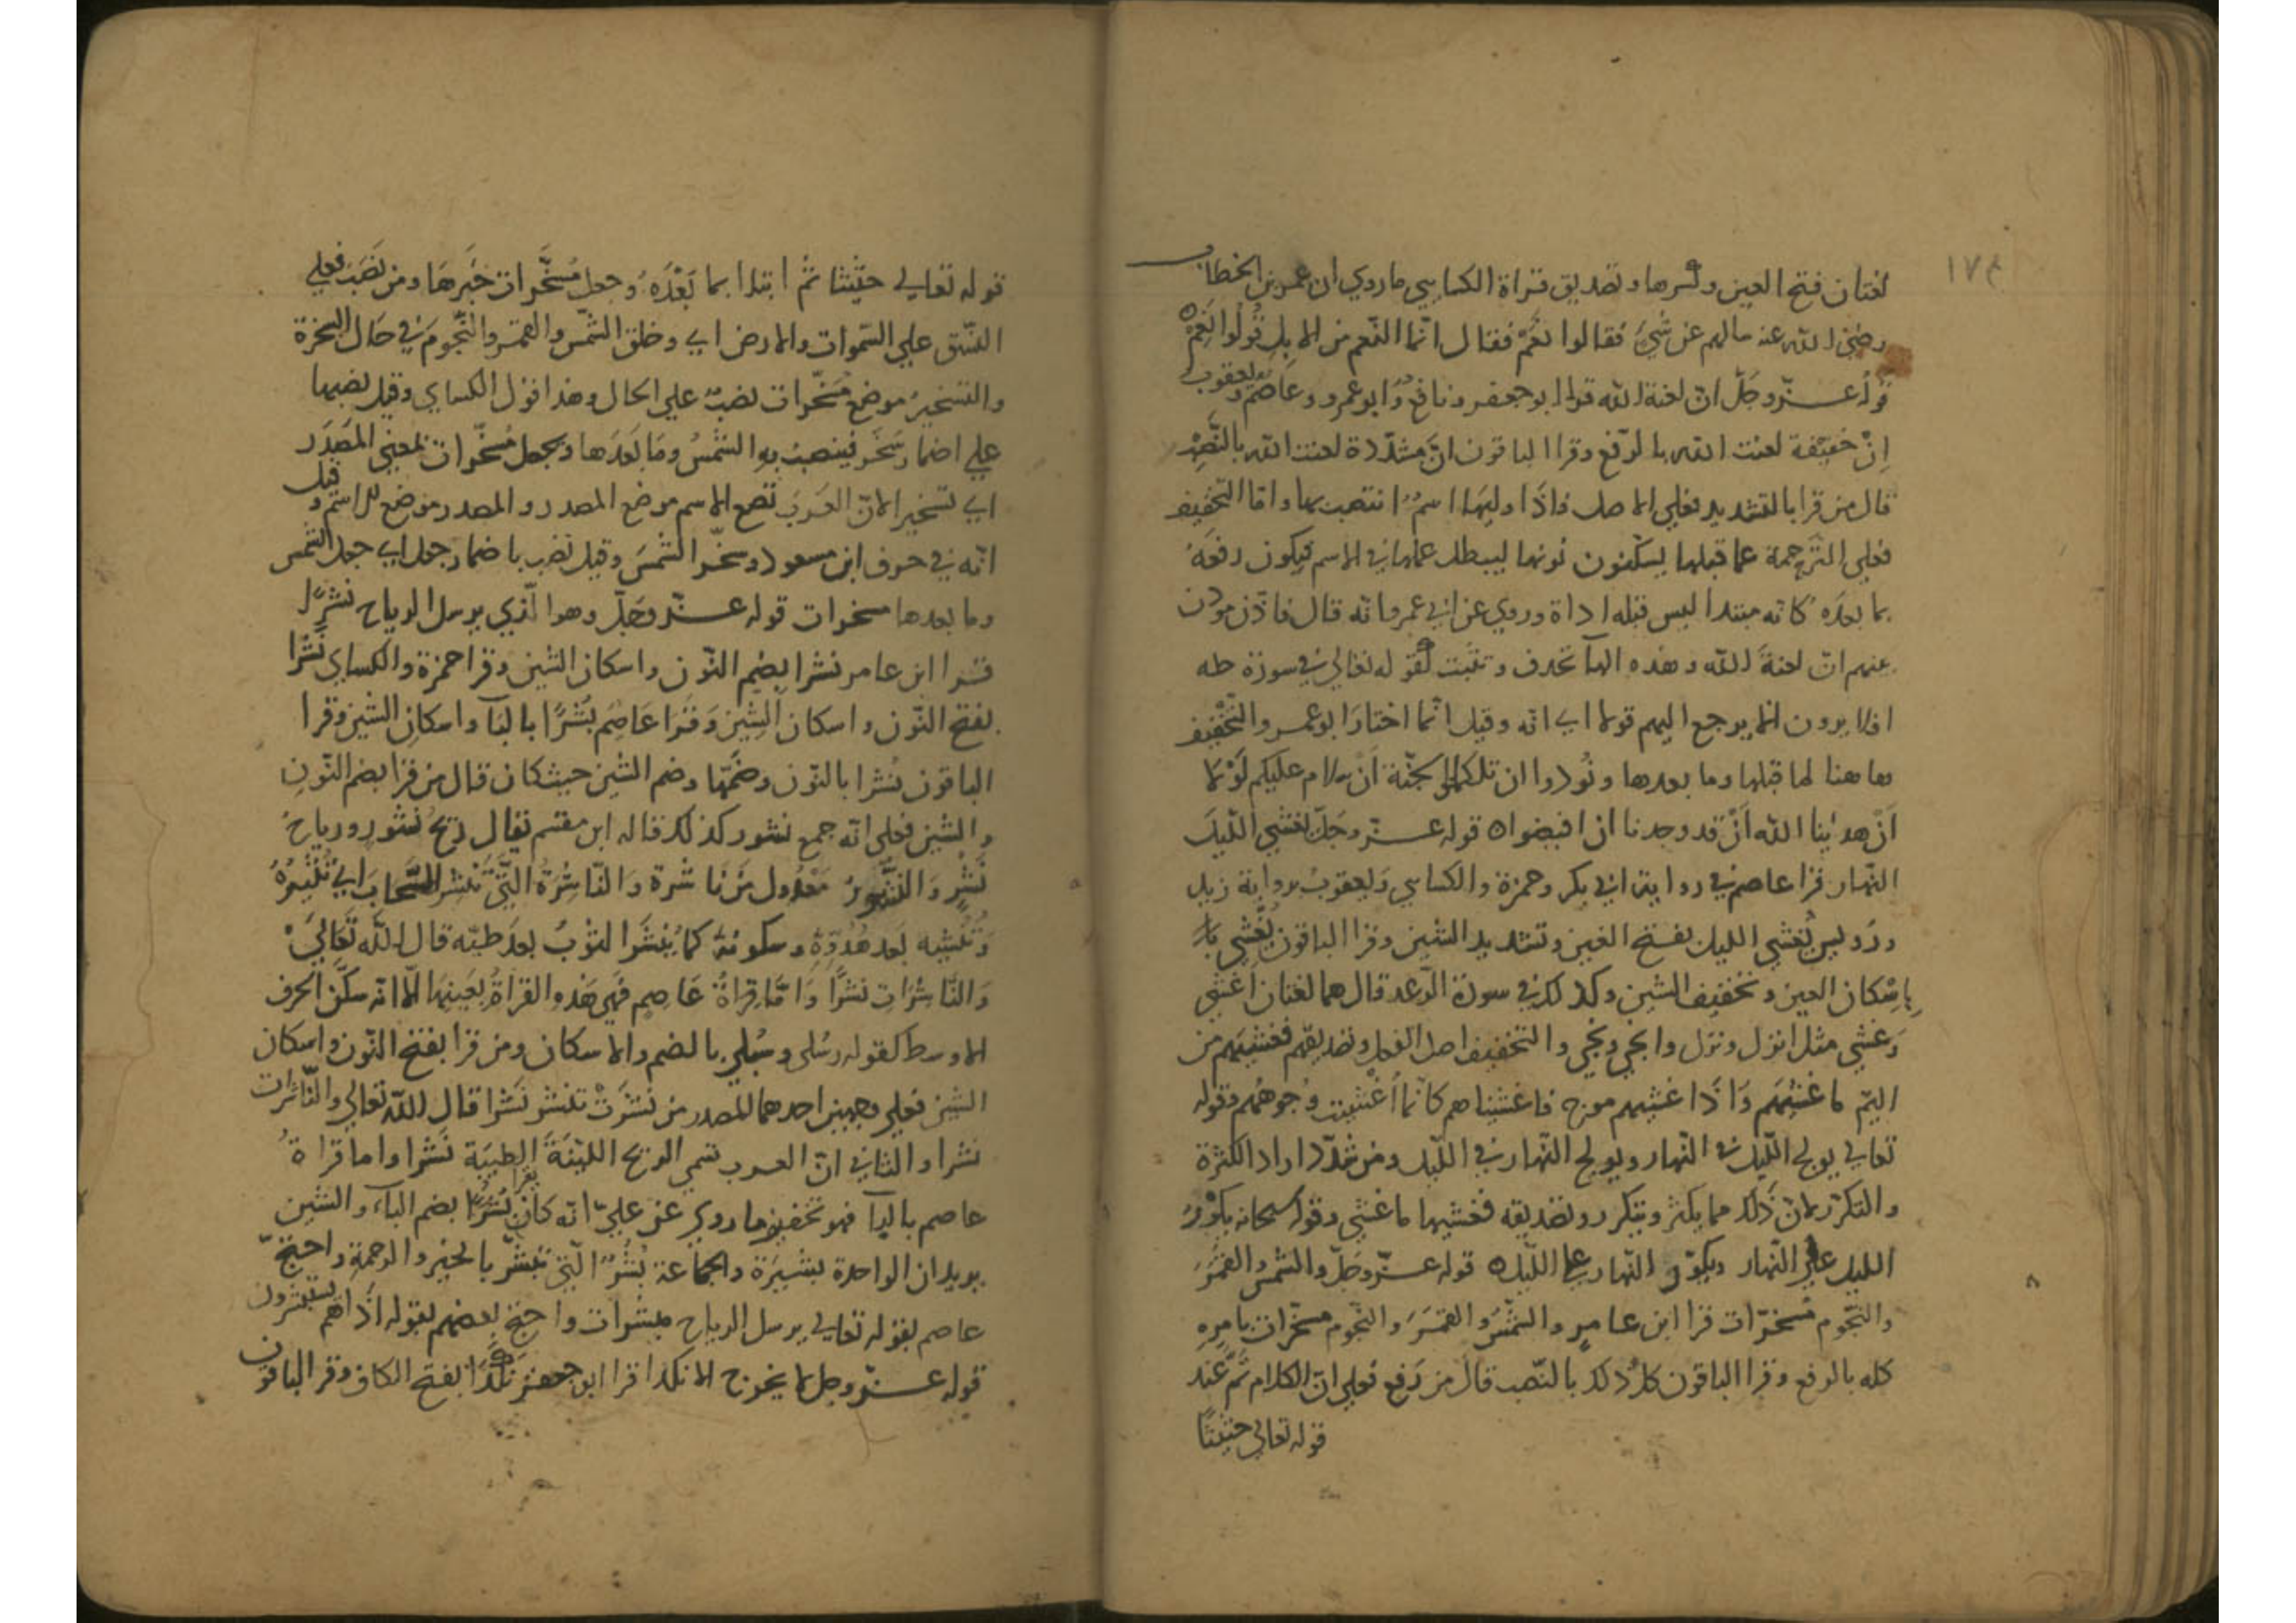 ١٧٣
لغتان فتح العين وكسرها وتصديق قراة الكسايي ماروي ان عمر بن الخطاب
رضي الله عنه سالهم عن شيء فقالوا نعم فقال انما النعم من الابل قولوا نعم
قوله عز وجل ان لعنة الله قرا ابو جعفر ونافع وابو عمرو وعاصم ويعقوب
ان خفيفة لعنت الله بالرفع وقرا الباقون ان مشددة لعنت الله بالنصب
قال من قرا بالتشديد فعلي الاصل فاذا وليها اسم انتصب بها واما التخفيف
فعلي الترجمة عما قبلها يسكنون نونها ليبطل عملها في الاسم فيكون رفعه
بما بعده كانه مبتدا ليس قبله اداة وروي عن ابي عمرو انه قال فاذن موذن
بينهم ان لعنة الله وهذه الهآ تحذف وتثبت كقوله تعالي في سورة طه
افلا يرون الا يرجع اليهم قولا اي انه وقيل انما اختار ابو عمرو التخفيف
هاهنا لما قبلها وما بعدها ونودوا ان تلكم الجنة ان سلام عليكم لولا
ان هدينا الله ان قد وجدنا ان افيضوا ٥ قوله عز وجل يغشي الليل
النهار قرا عاصم في رواية ابي بكر وحمزة والكسايي ويعقوب برواية زيد
ورويس يغشي الليل بفتح الغين وتشديد الشين وقرا الباقون يغشي
باسكان الغين وتخفيف الشين وكذلك في سورة الرعد قال هما لغتان اغشي
وغشي مثل انزل ونزل وانجي ونجي والتخفيف اصل الفعل وتصديقه فغشيهم من
اليم ما غشيهم واذا غشيهم موج فاغشيناهم كانما اغشيت وجوههم وقوله
تعالي يولج الليل في النهار ويولج النهار في الليل ومن شدد اراد الكثرة
والتكرر لان ذلك مما يكثر ويتكرر وتصديقه فغشيها ما غشي وقوله سبحانه يكور
الليل علي النهار ويكور النهار علي الليل ٥ قوله عز وجل والشمس والقمر
والنجوم مسخرات قرا ابن عامر والشمس والقمر والنجوم مسخرات بامره
كله بالرفع وقرا الباقون كل ذلك بالنصب قال من رفع فعلي ان الكلام تم عند
قوله تعالي حثيثا
قوله تعالي حثيثا ثم ابتدا بما بعده وجعل مسخرات خبرها ومن نصب فعلي
النسق علي السموات والارض اي وخلق الشمس والقمر والنجوم في حال السخرة
والتسخير موضع مسخرات نصب علي الحال وهذا قول الكساي وقيل نصبها
علي اضمار سخر فينصب به الشمس وما بعدها ويجعل مسخرات بمعني المصدر
اي تسخيرا لان العرب تضع الاسم موضع المصدر والمصدر موضع الاسم وقيل
انه في حرف ابن مسعود وسخر الشمس وقيل نصب باضمار جعل اي جعل الشمس
وما بعدها مسخرات قوله عز وجل وهو الذي يرسل الرياح نشرا
قرا ابن عامر نشرا بضم النون واسكان الشين وقرا حمزة والكساي نشرا
بفتح النون واسكان الشين وقرا عاصم بشرا بالبآ واسكان الشين وقرا
الباقون نشرا بالنون وضمها وضم الشين حيث كان قال من قرا بضم النون
والشين فعلي انه جمع نشور كذلك قاله ابن مقسم تقال ريح نشور ورياح
نشر والنشور معدول من ناشرة والناشرة التي تنشر السحاب اي تثيره
وتنشيه بعد هدوه وسكونه كما ينشر الثوب بعد طيه قال الله تعالي
والناشرات نشرا واما قراة عاصم فهي هذه القراة بعينها الا انه سكن الحرف
الاوسط كقوله رسلي وسبلي بالضم والاسكان ومن قرا بفتح النون واسكان
الشين فعلي وجهين احدهما المصدر من نشرت تنشر نشرا قال الله تعالي والناشرات
نشرا والثاني ان العرب تسمي الريح اللينة الطيبة نشرا واما قراة
عاصم بالبآ فهو تخفيف ما روي عن علي انه كان يقرا بشرا بضم البآء والشين
يريد ان الواحدة بشيرة والجماعة بشر التي تبشر بالخير والرحمة واحتج
عاصم بقوله تعالي يرسل الرياح مبشرات واحتج بعضهم بقوله اذا هم يستبشرون
قوله عز وجل لا يخرج الا نكدا قرا ابن جعفر نكدا بفتح الكاف وقرا الباقون